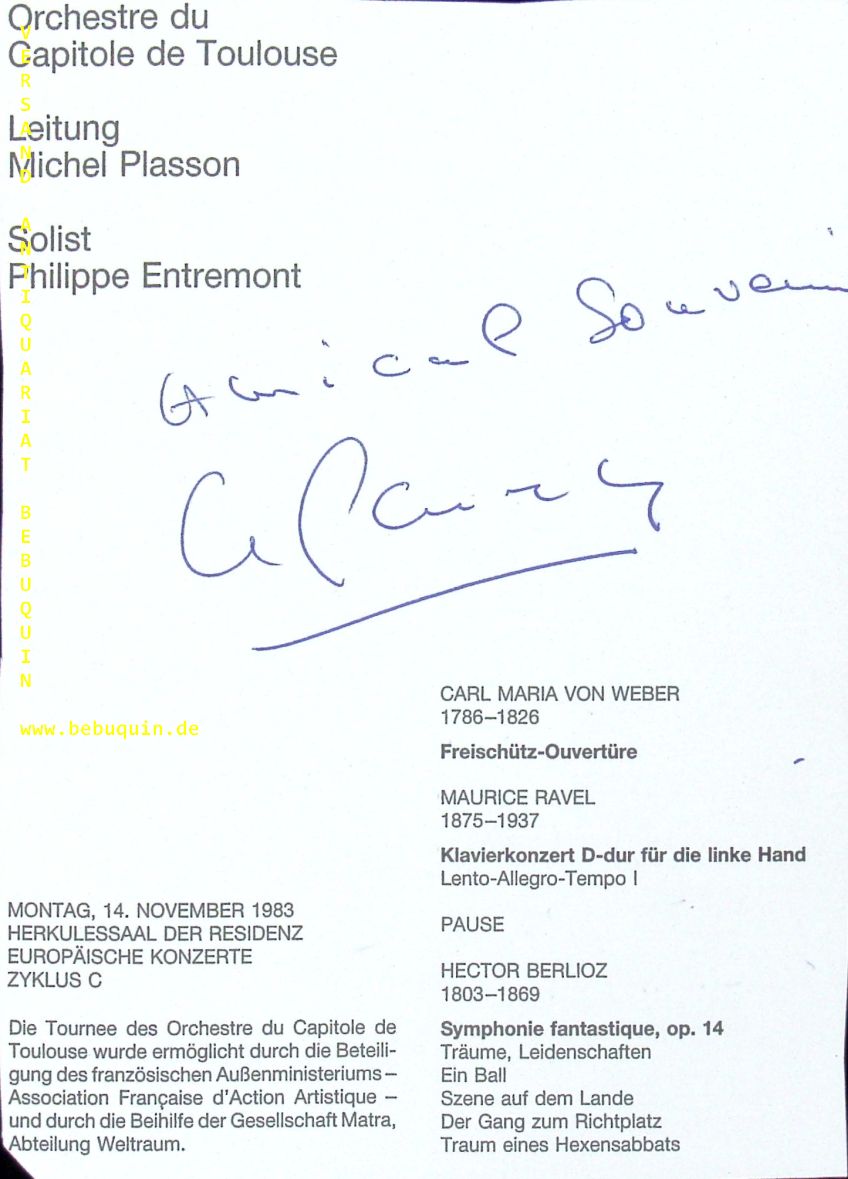 Orchestre du
Capitole de Toulouse
Leitung
Michel Plasson
Solist
Philippe Entremont
Amical Souvenir
CARL MARIA VON WEBER
1786–1826
Freischütz-Ouvertüre
MAURICE RAVEL
1875–1937
Klavierkonzert D-dur für die linke Hand
Lento-Allegro-Tempo I
PAUSE
HECTOR BERLIOZ
1803–1869
Symphonie fantastique, op. 14
Träume, Leidenschaften
Ein Ball
Szene auf dem Lande
Der Gang zum Richtplatz
Traum eines Hexensabbats
MONTAG, 14. NOVEMBER 1983
HERKULESSAAL DER RESIDENZ
EUROPÄISCHE KONZERTE
ZYKLUS C
Die Tournee des Orchestre du Capitole de
Toulouse wurde ermöglicht durch die Beteili-
gung des französischen Außenministeriums –
Association Française d'Action Artistique –
und durch die Beihilfe der Gesellschaft Matra,
Abteilung Weltraum.
VERSAND ANTIQUARIAT BEBUQUIN
www.bebuquin.de